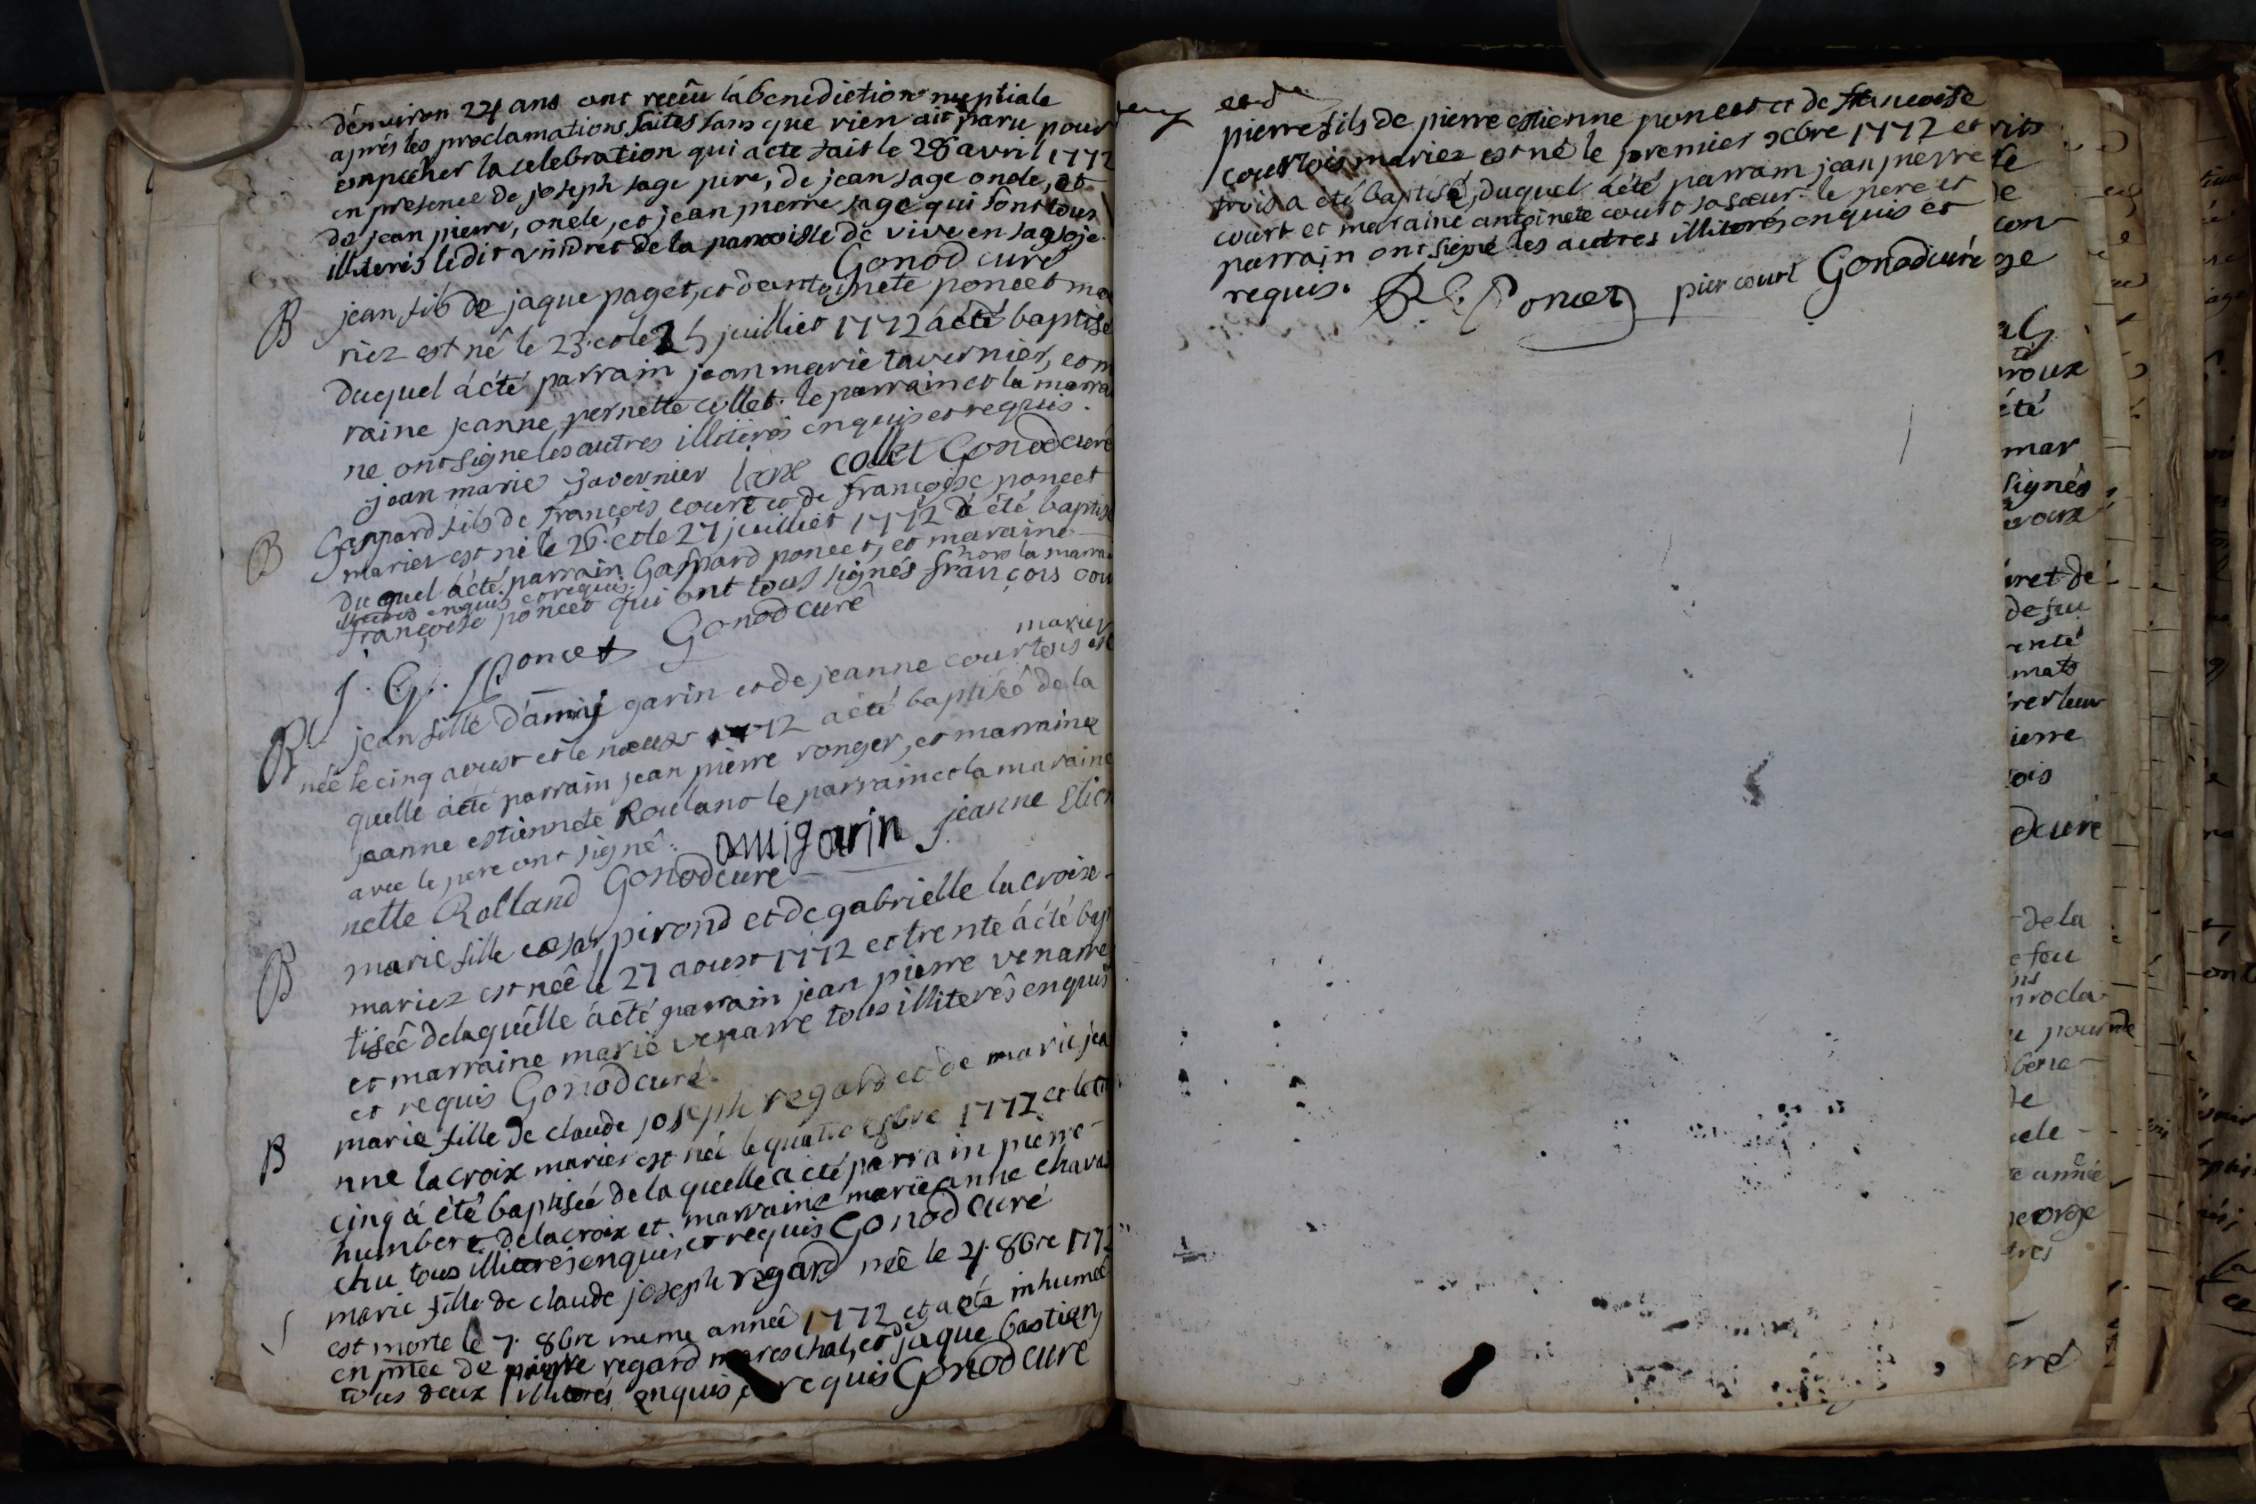 d'environ 24 ans ont reçeu la benediction nuptiale
aprés les proclamations faites sans que rien ait paru pour
empecher la celebration qui acte fait le 28 avril 1772
en presence de joseph sage pere, de jean sage oncle, et
de jean pierre, oncle, et jean pierre sage qui sont tous
illiterés ledit vindret de la parroisse de vive en sa
Gonod curé
B jean fils de jaque paget, et d'antoinete poncet ma
riez est né le 23. et le 25 juilliet 1772 a été baptisé
duquel a été parrain jean marie tavernier, et m
raine jeanne pernette collet. le parrain et la marra
ne ont signe les autres illiterés enquis et requis.
jean marie Javernier collet Gonod curé
B Gaspard fils de françois court et de françoise poncet
mariez est né le 26. et le 27 juilliet 1772 a été baptisé
du quel a été parrain Gaspard poncet, et maraine
françoise poncet qui ont tous signés hors la marra
illiteres enquis et requis. françois cou
J. G. Poncet Gonod curé
B jean fille d'amij garin et de jeanne courtois mariez est
née le cinq aoust et le neuf 1772 a été baptisée de la
quelle a été parrain jean pierre ronger, et marraine
jeanne estiennete Roulano le parrain et la maraine
avec le pere ont signé. amij garin jeanne Etien
nette Rolland Gonod curé
B marie fille cesar pirond et de gabrielle lacroix
mariez est née le 27 aoust 1772 et trente a été bap
tisée de laquelle a été parrain jean pierre venarre
et marraine marie venarre tous illiterés enquis
et requis Gonod curé.
B marie fille de claude joseph regard et de marie jea
nne lacroix mariez est née le quatre 8bre 1772 et le
cinq a été baptisée de la quelle a été parrain pierre
humbert delacroix et marraine marie anne chava
chu tous illiterés enquis et requis Gonod curé
S marie fille de claude joseph regard née le 4. 8bre 1772
est morte le 7. 8bre meme année 1772 et a été inhumée
en pnce de pierre regard mareschal, et de jaque bastien
tous deux illiterés enquis et requis Gonod curé
pierre fils de pierre estienne poncet et de francoise
courtois mariez est né le premier xbre 1772 et
trois a été baptisé, duquel a été parrain jean pierre
court et maraine antoinete court sa sœur. le pere et
parrain ont signé les autres illiterés enquis et
requis. P. E. Poncet pier court Gonod curé